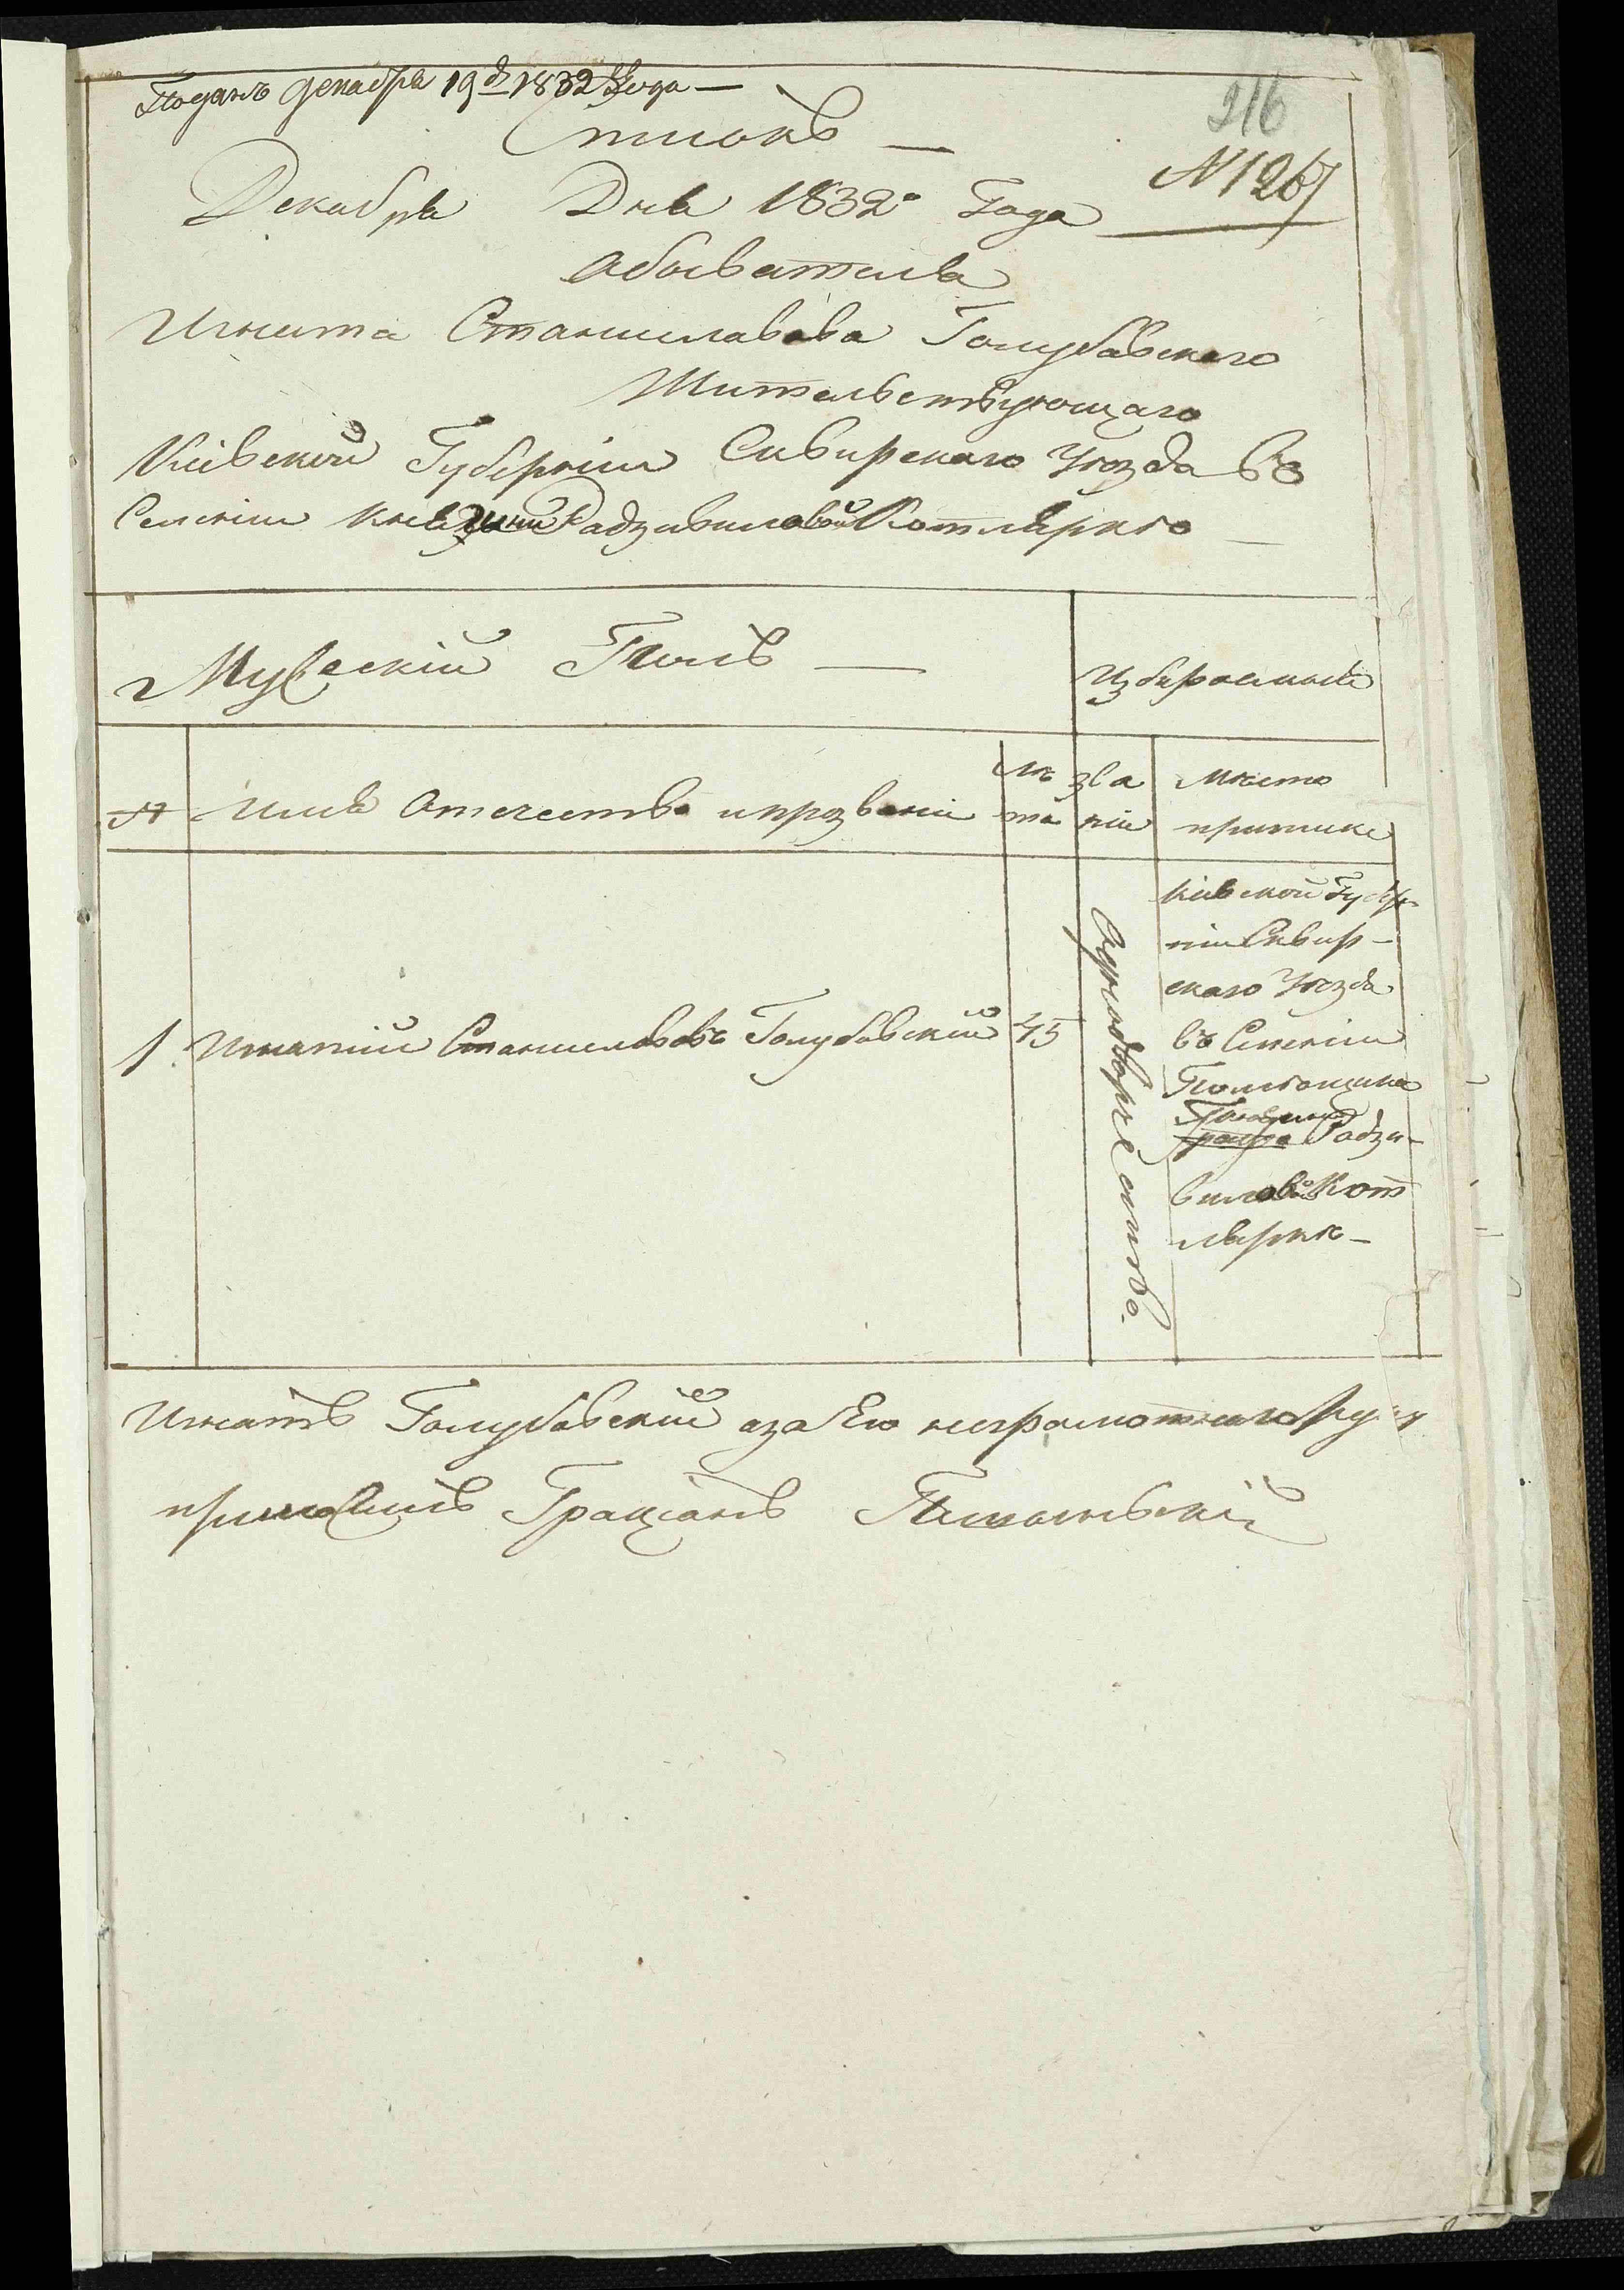 Поданъ декабря 19 д 1832 Года —
216
Списокъ —
№ 1267
Декабря Дня 1832го Года
Обывателя
Игната Станиславова Голубовского
Жительствующаго
Кіевской Губерніи Сквирскаго Уѣзда въ
Селеніи Княгини Радзивиловой Котлярке —
Мужескій Полъ —
Избираемые
№ Имя Отечество и прозваніи лѣта званіи Место приписке
1. Игнатій Станиславовъ Голубовскій 45
Однодворчество.
Кіевской Губер
ніи Сквир-
скаго Уѣзда
въ Селеніи
Помѣщика
Княгини
графа Радзи-
виловой Кот
лярке —
Игнатъ Голубовскій а за Его неграмотнаго Руку
приложилъ Граціанъ